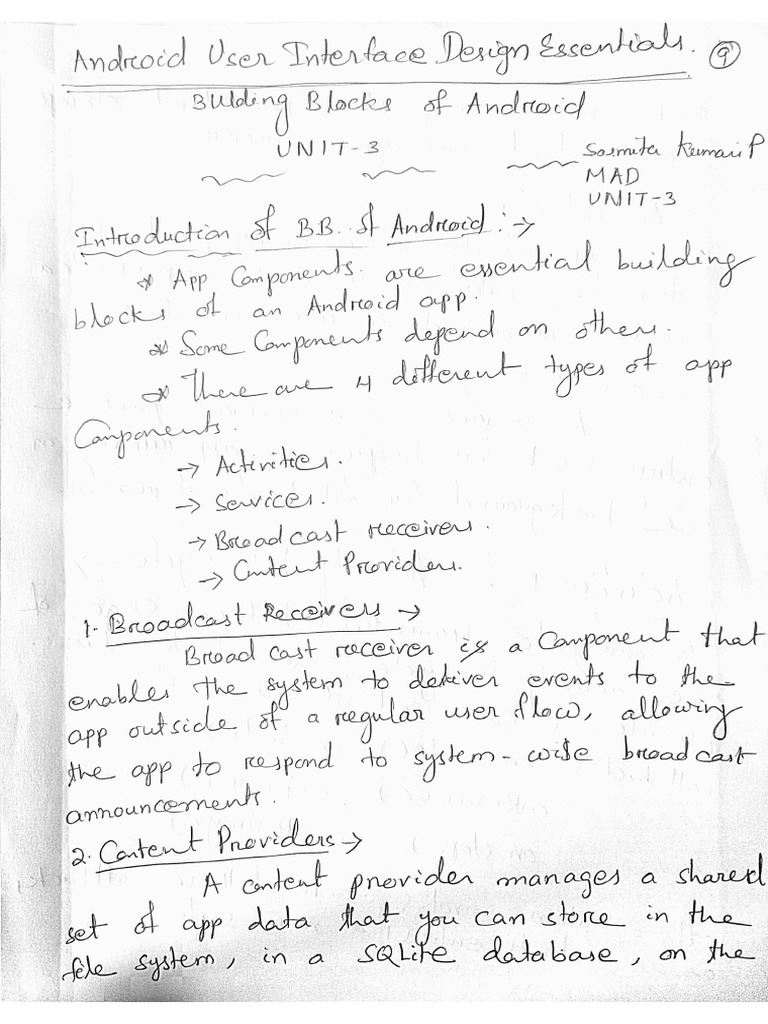 Android User Interface Design Essentials. 9
Building Blocks of Android
UNIT-3
Sasmita Kumari P
MAD
UNIT-3
Introduction of B.B. of Android : →
* App Components are essential building
blocks of an Android app.
* Some Components depend on others.
* There are 4 different types of app
Components.
→ Activities.
→ Services.
→ Broadcast receivers.
→ Content Providers.
1. Broadcast Receivers →
Broad cast receiver is a Component that
enables the system to deliver events to the
app outside of a regular user flow, allowing
the app to respond to system-wide broadcast
announcements.
2. Content Providers →
A content provider manages a shared
set of app data that you can store in the
file system, in a SQLite database, on the